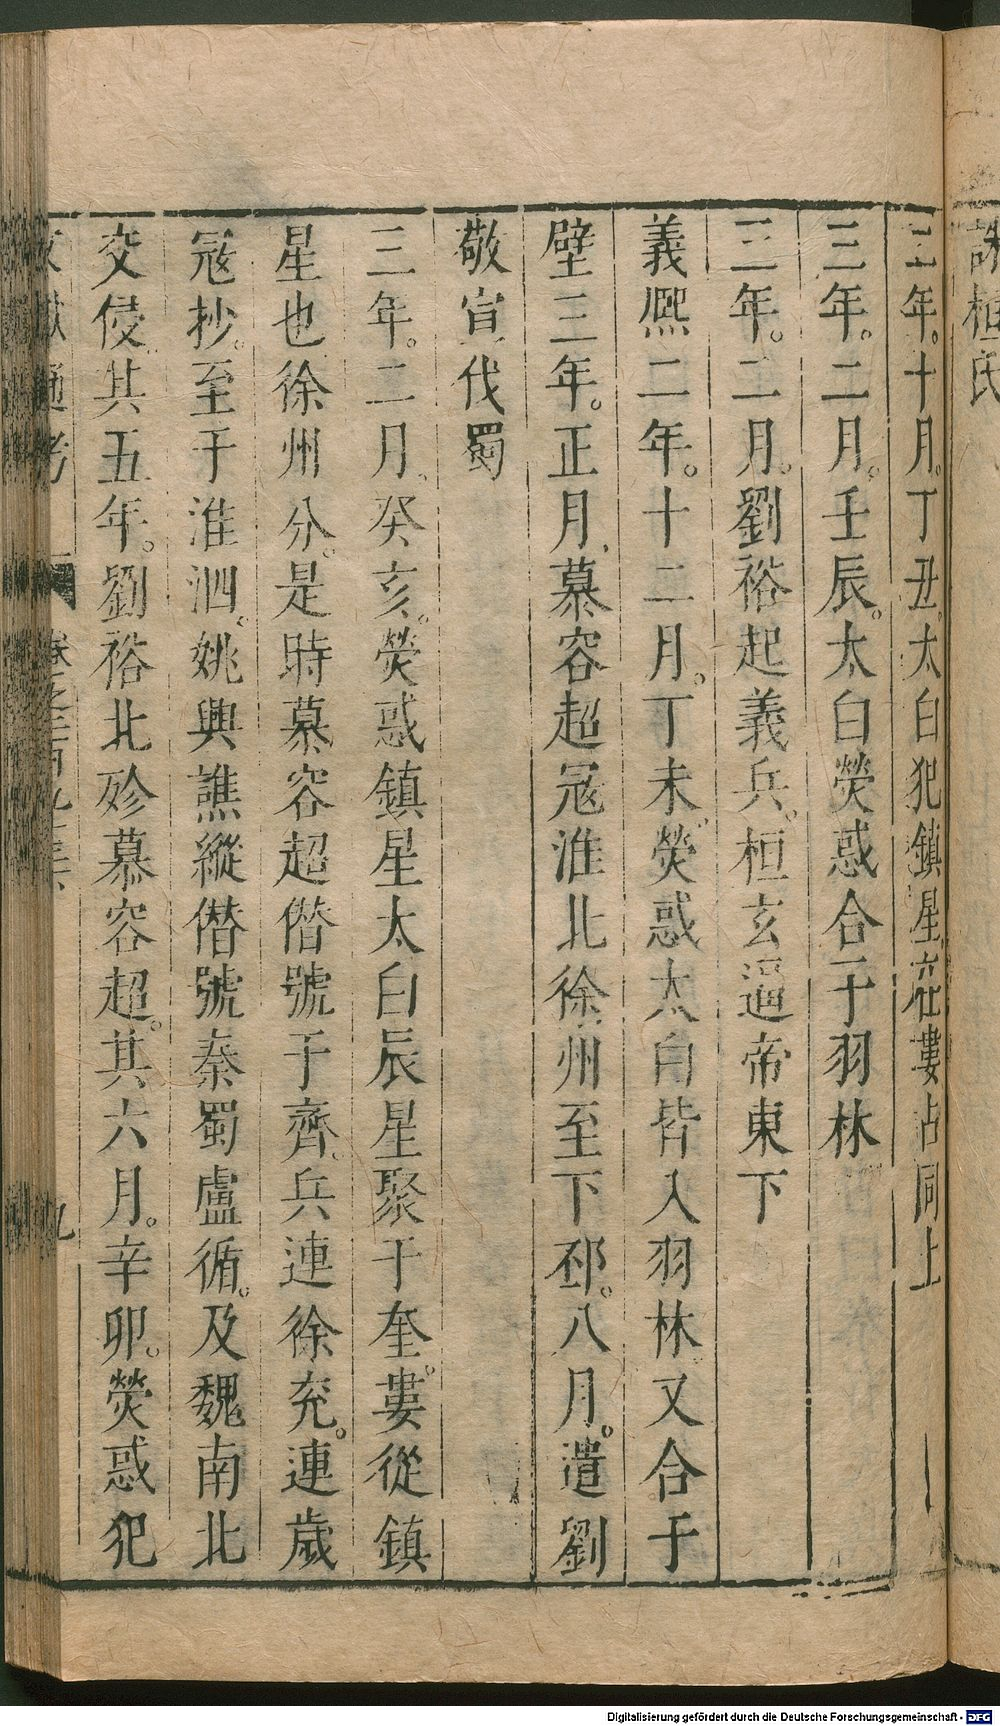 誅桓氏
三年。十月。丁丑。太白犯鎮星在婁占同上
三年。二月。壬辰。太白熒惑合于羽林
三年。二月。劉裕起義兵。桓玄逼帝東下
義熙二年。十二月。丁未。熒惑太白皆入羽林又合于
壁三年。正月。慕容超寇淮北徐州至下邳。八月。遣劉
敬宣伐蜀
三年。二月。癸亥。熒惑鎮星太白辰星聚于奎。婁從鎮
星也徐州分。是時慕容超僭號于齊。兵連徐兖。連歲
寇抄。至于淮泗。姚興譙縱僭號秦蜀盧循。及魏南北
交侵。其五年。劉裕北殄慕容超。其六月。辛卯。熒惑犯
文獻通考 卷之二百九十三 九
Digitalisierung gefördert durch die Deutsche Forschungsgemeinschaft - DFG